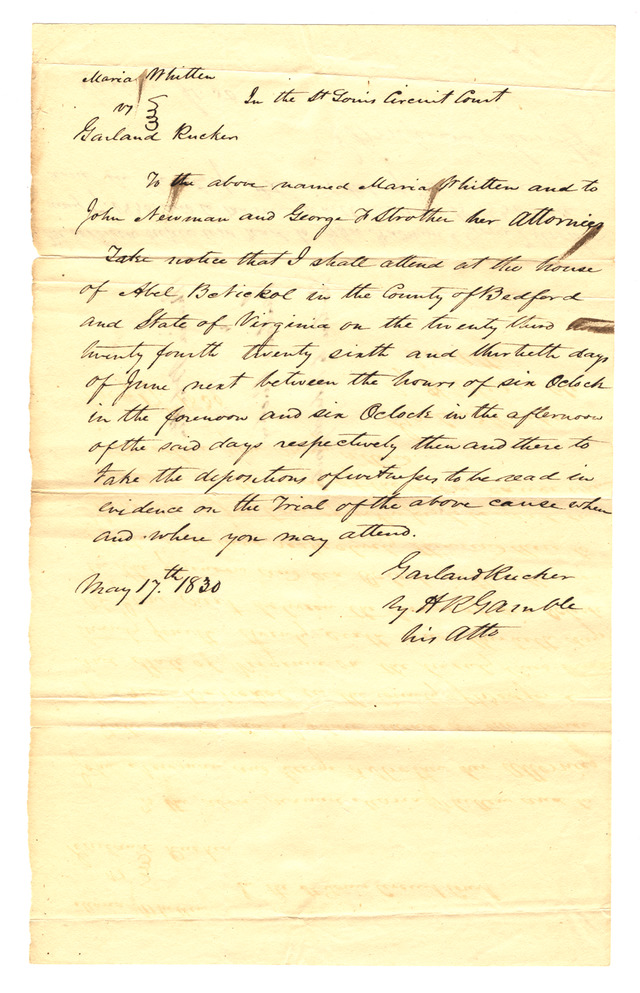 Maria Whitten
vs
In the St Louis Circuit Court
Garland Rucker
To the above named Maria Whitten and to
John Newman and George F Strother her Attornies
Take notice that I shall attend at the house
of Abel BcNickol in the County of Bedford
and State of Virginia on the twenty third
twenty fourth twenty sixth and thirtieth days
of June next between the hours of six Oclock
in the forenoon and six Oclock in the afternoon
of the said days respectively then and there to
take the depositions of witnesses to be read in
evidence on the Trial of the above cause when
and where you may attend.
May 17.th 1830
Garland Rucker
by H R Gamble
his Atto